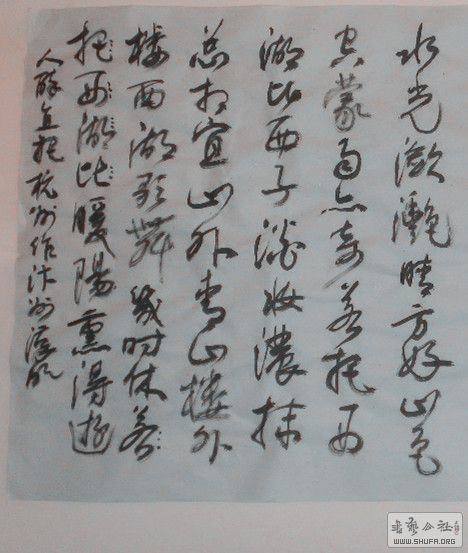 水光潋滟晴方好山色
空蒙雨亦奇若把西
湖比西子淡妝濃抹
总相宜山外青山楼外
楼西湖歌舞幾时休若
把西湖比暖陽熏得遊
人醉直把杭州作汴州
书艺公社
WWW.SHUFA.ORG